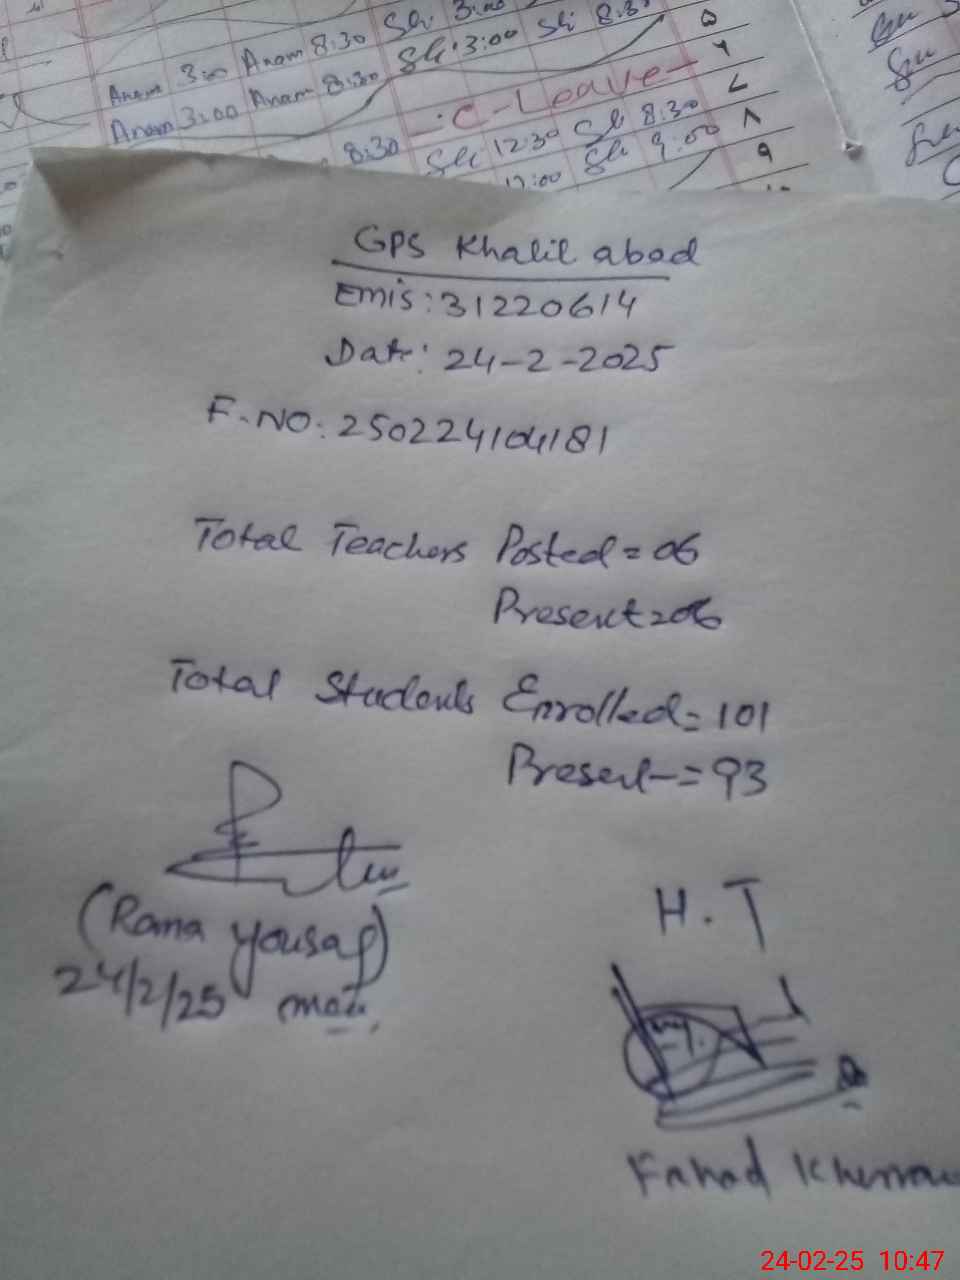 Anam 3:00 Anam 8:30 Sh: 3:00
Anam 3:00 Anam 8:30 Sh: 3:00 Sh: 8:30 ۵
۶
-C-Leave- ۷
8:30 Sh 12:30 Sh 8:30 ۸
12:00 Sh 9:00 ۹
GPS Khalil abad
Emis: 31220614
Date: 24-2-2025
F.NO: 250224104181
Total Teachers Posted = 06
Present = 06
Total Students Enrolled = 101
Present = 93
(Rana Yousaf)
24/2/25
H.T
Fahad
24-02-25 10:47